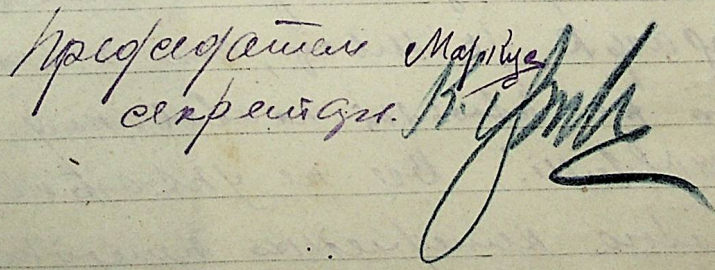 Председатель Маркус
секретарь.